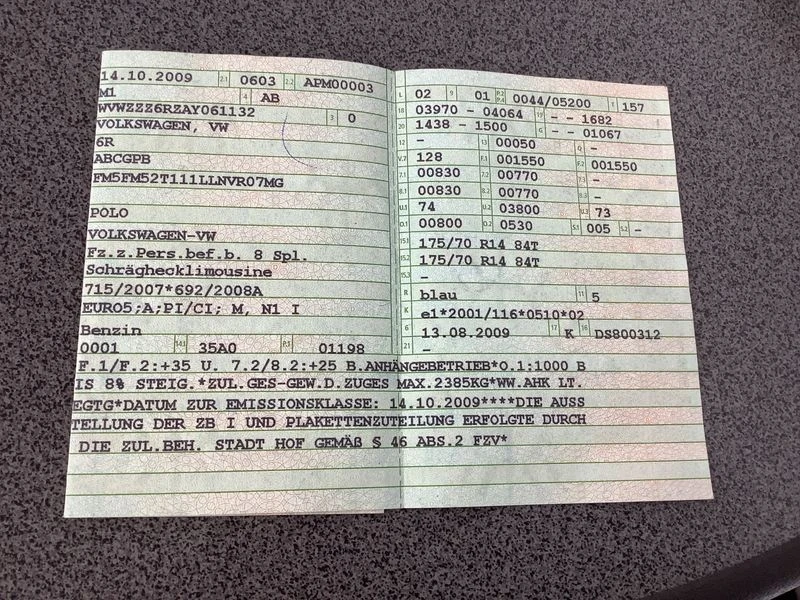 14.10.2009 2.1 0603 2.2 APM00003
M1 4 AB
WVWZZZ6RZAY061132 3 0
VOLKSWAGEN, VW
6R
ABCGPB
FM5FM52T111LLNVR07MG
POLO
VOLKSWAGEN-VW
Fz.z.Pers.bef.b. 8 Spl.
Schräghecklimousine
715/2007*692/2008A
EURO5;A;PI/CI; M, N1 I
Benzin
0001 14.1 35A0 P.1 01198
L 02 9 01 P.2 P.4 0044/05200 T 157
18 03970 - 04064 19 - - 1682
20 1438 - 1500 G - - 01067
12 - 13 00050 Q -
V.7 128 F.1 001550 F.2 001550
7.1 00830 7.2 00770 7.3 -
8.1 00830 8.2 00770 8.3 -
U.1 74 U.2 03800 U.3 73
O.1 00800 O.2 0530 S.1 005 S.2 -
15.1 175/70 R14 84T
15.2 175/70 R14 84T
15.3 -
R blau 11 5
K e1*2001/116*0510*02
6 13.08.2009 17 K 16 DS800312
21 -
F.1/F.2:+35 U. 7.2/8.2:+25 B.ANHÄNGEBETRIEB*O.1:1000 B
IS 8% STEIG.*ZUL.GES-GEW.D.ZUGES MAX.2385KG*WW.AHK LT.
EGTG*DATUM ZUR EMISSIONSKLASSE: 14.10.2009****DIE AUSS
TELLUNG DER ZB I UND PLAKETTENZUTEILUNG ERFOLGTE DURCH
DIE ZUL.BEH. STADT HOF GEMÄß § 46 ABS.2 FZV*